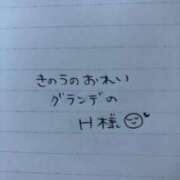 きのうのおれい
グランデの
H様